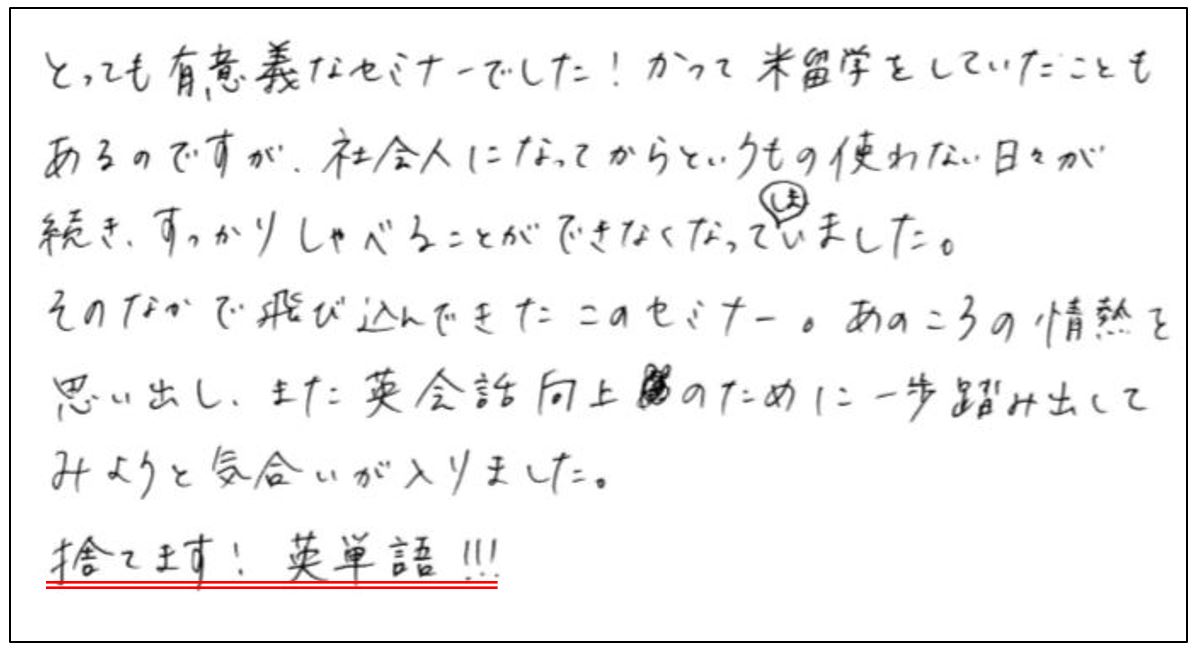 とっても有意義なセミナーでした！かつて米留学をしていたことも
あるのですが、社会人になってからというもの使わない日々が
続き、すっかりしゃべることができなくなってしまいました。
そのなかで飛び込んできたこのセミナー。あのころの情熱を
思い出し、また英会話向上のために一歩踏み出して
みようと気合いが入りました。
捨てます！英単語!!!